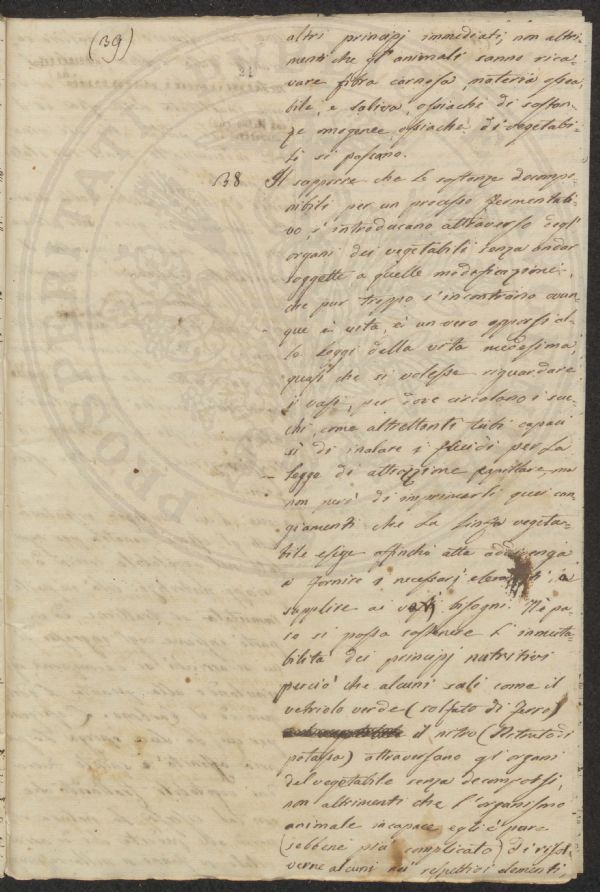 (39)
altri principj immediati, non altri-
menti che gl' animali sanno rica-
vare fibra carnosa, materia ossea,
bile, e saliva, ossiache di sostan-
ze omogenee, ossiache di vegetabi-
li si pascano.
38 Il supporre che le sostanze decompo-
nibili per un processo fermentati-
vo s'introducano attraverso degl'
organi dei vegetabili senza andar
soggette a quelle modificazioni
che pur troppo s'incontrano ovun-
que è vita, è un vero opporsi al-
le leggi della vita medesima,
quasi che si volesse riguardare
i vasi, per dove circolano i suc-
chi, come altrettanti tubi capaci
sì di inalare i fluidi per la
legge di attrazione capillare, ma
non però di imprimerli quei can-
giamenti che la linfa vegeta-
bile esige affinchè atta addivenga
a fornire i necessarj a
supplire ai bisogni. Nè pa-
ro si possa sostenere l'immuta-
bilità dei principj nutritivi
perciò che alcuni sali come il
vetriolo verde (solfato di ferro)
il nitro (Nitrato di
potassa) attraversano gl'organi
del vegetabile senza decomporsi,
non altrimenti che l'organismo
animale incapace egli è pure
(sebbene più complicato) di risol-
verne alcuni nei respettivi elementi,